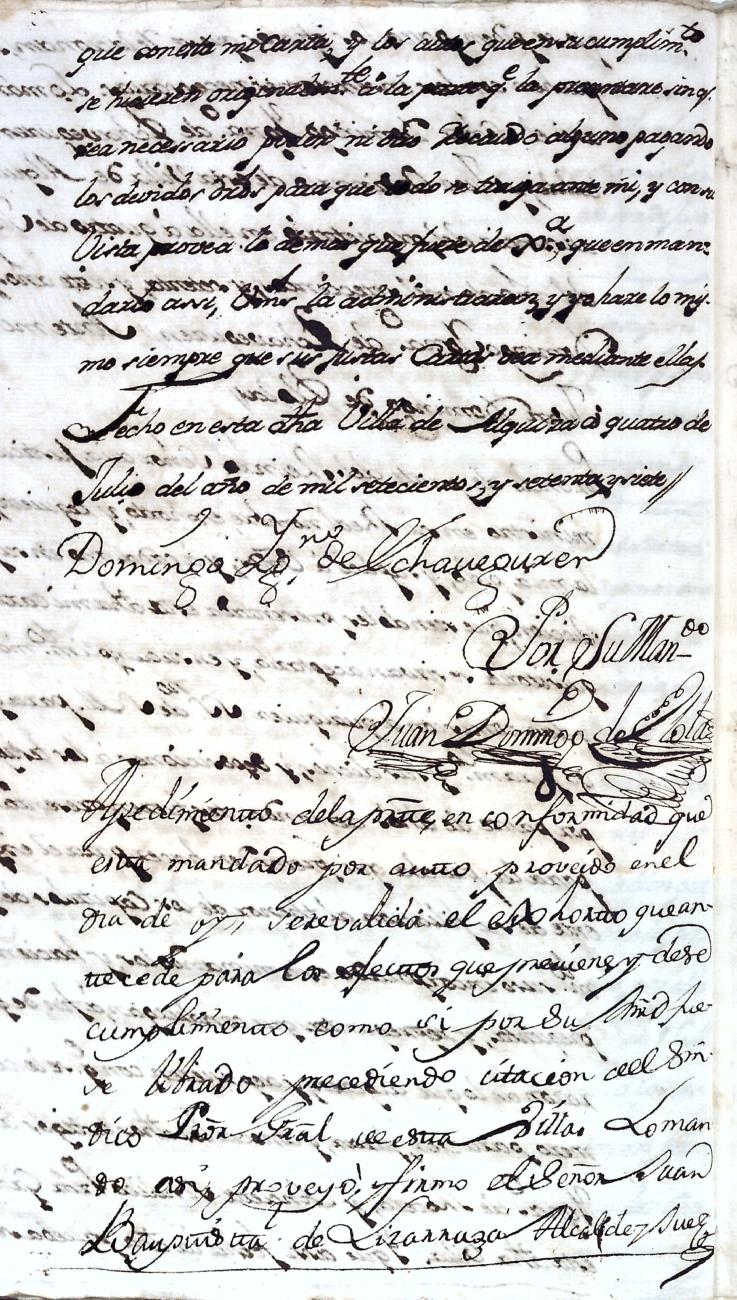 que con esta mi Carta, y los autos que en su cumplim.to
se hizieren originalm.te à la parte q.e la presentare sin q.
sea necessario poder ni otro Recaudo alguno pagando
los devidos dros para que todo se traiga ante mi, y con su
Vista provea lo demas que fuere de x.a, que en man-
darlo assi, Vms la administraran, y yo hare lo mis-
mo siempre que sus Justas Cartas vea mediante ellas.
Fecho en esta dha Villa de à quatro de
Julio del año de mil setecientos, y setenta y siete //
Domingo de Echaveguren
Por Su Man.do
Juan Domingo de
Apedimento dela parte, en conformidad que
esta mandado por auto proveido en el
dia de oy, se revalida el exohorto que an-
tecede para los efectos que previene, y desele
cumplimento como si por su Mrd fue-
se librado precediendo citacion del Sin-
dico Pror Gral de esta Villa. Loman
do asi, proveyò, y firmo el Señor Juan
Bauptista de Lizarraga Alcalde y Juez